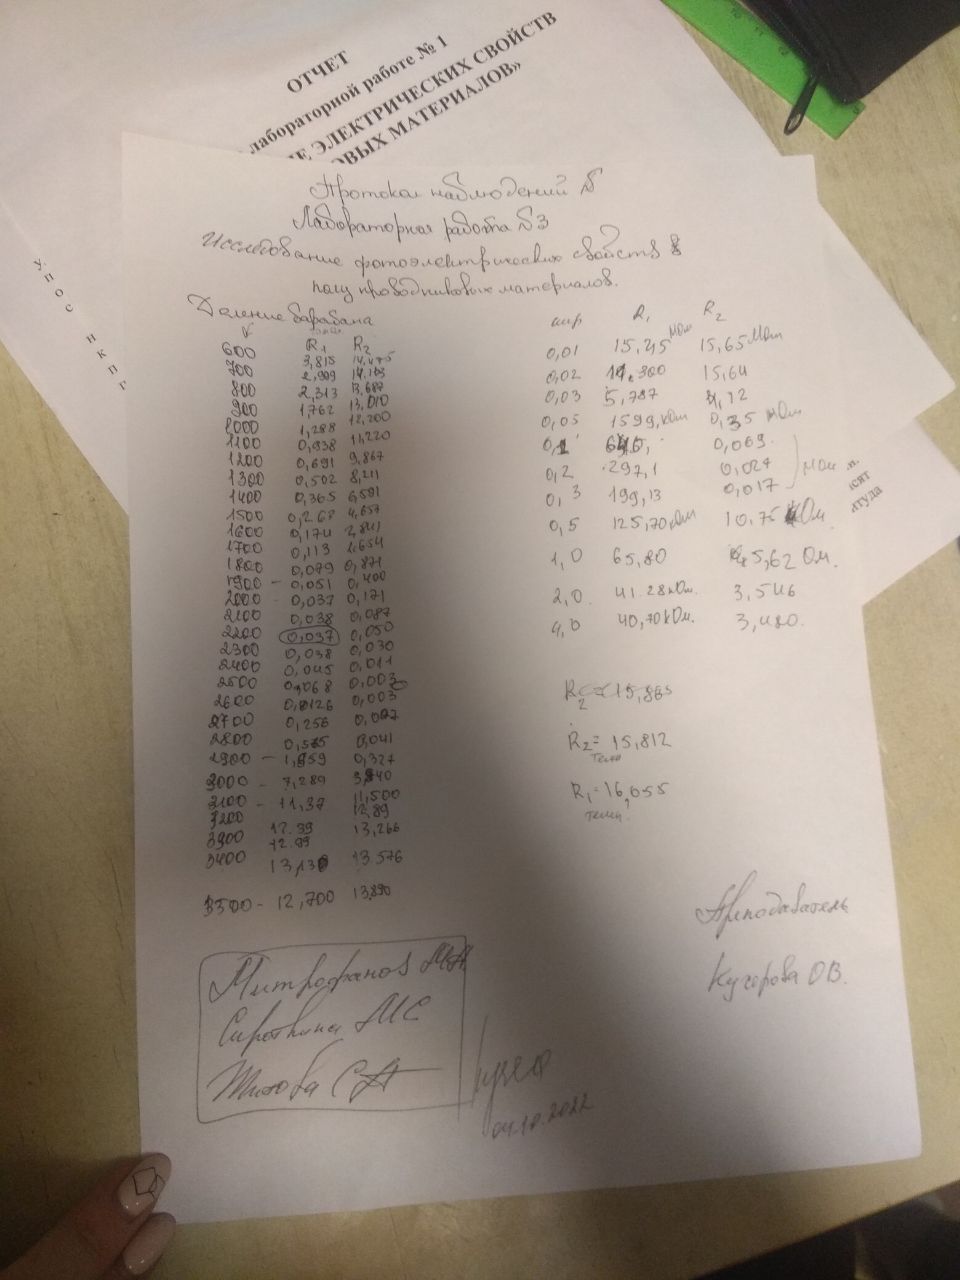 ОТЧЕТ
лабораторной работе № 1
ИЕ ЭЛЕКТРИЧЕСКИХ СВОЙСТВ
ОВЫХ МАТЕРИАЛОВ»
Протокол наблюдений
Лабораторная работа №3
Исследование фотоэлектрических свойств
полупроводниковых материалов.
Деление барабана
R1 R2
600 3,815 14.475
700 2,909 14.143
800 2,313 13,687
900 1,762 13,010
1000 1,288 12,200
1100 0,938 11,220
1200 0,691 9,867
1300 0,502 8,211
1400 0,365 6,581
1500 0,267 4,657
1600 0,174 2,841
1700 0,113 1,654
1800 0,079 0,871
1900 - 0,051 0,400
2000 - 0,037 0,171
2100 0,038 0,087
2200 0,037 0,050
2300 0,038 0,030
2400 0,045 0,011
2500 0,068 0,003
2600 0,0126 0,003
2700 0,256 0,007
2800 0,575 0,041
2900 - 1,959 0,327
3000 - 7,289 3,940
3100 - 11,37 11,500
3200 12.39 12,89
3300 12.99 13,266
3400 13,130 13.576
3500 - 12,700 13,890
шир R1 R2
0,01 15,45 МОм 15,65 МОм
0,02 14.300 15,64
0,03 5,787
0,05 1599, кОм 0,35 МОм
0,1 0,069
0,2 297,1 0,027
0,3 199,13 0,017
МОм
0,5 125,70 кОм 10.75 кОм
1,0 65,80 5,62 Ом.
2,0. 41.28 кОм. 3,546
4,0 40,70 кОм. 3,480.
R2 = 15,865
R2 = 15,812
темн
R1 = 16,055
темн.
Преподаватель
Кучерова О.В.
Митрофанов МА
Сироткина МС
Тихова СА
04.10.2022